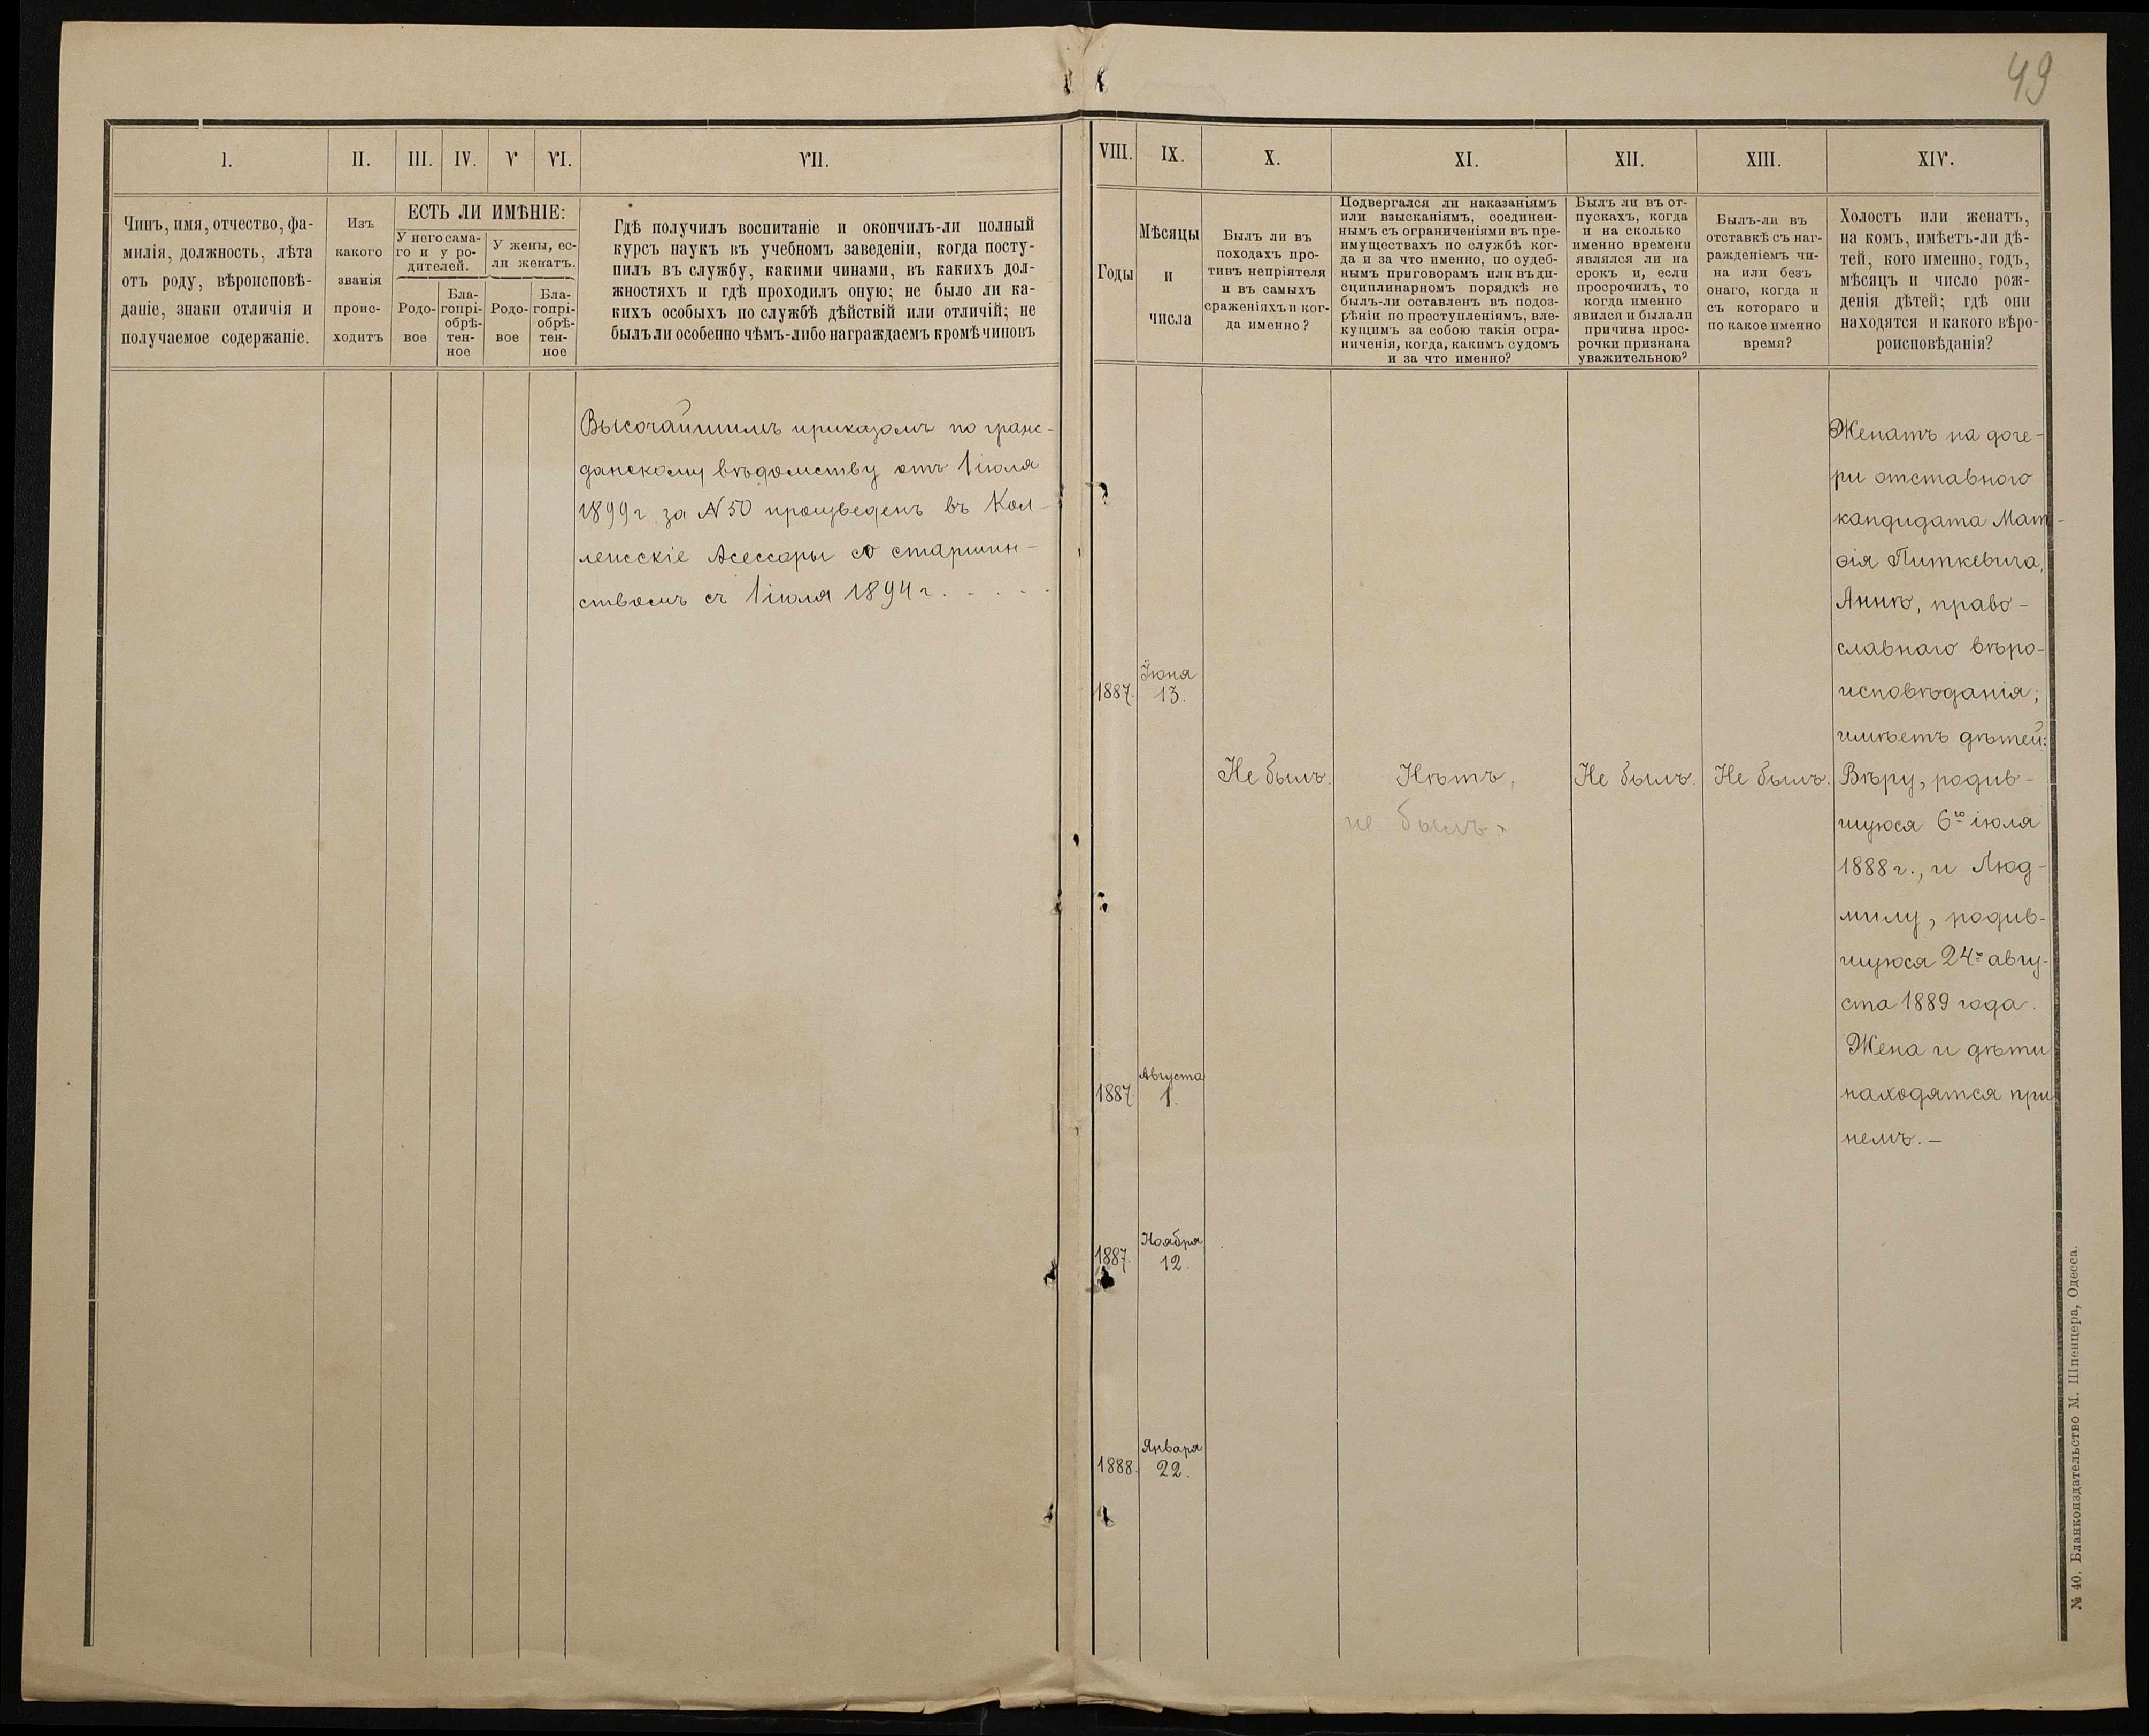 49
I.
II.
III.
IV.
V
VI.
VII.
Чинъ, имя, отчество, фа-
милія, должность, лѣта
отъ роду, вѣроисповѣ-
даніе, знаки отличія и
получаемое содержаніе.
Изъ
какого
званія
проис-
ходитъ
ЕСТЬ ЛИ ИМѢНІЕ:
У него сама-
го и у ро-
дителей.
У жены, ес-
ли женатъ.
Родо-
вое
Бла-
гопрі-
обрѣ-
тен-
ное
Родо-
вое
Бла-
гопрі-
обрѣ-
тен-
ное
Гдѣ получилъ воспитаніе и окончилъ-ли полный
курсъ наукъ въ учебномъ заведеніи, когда посту-
пилъ въ службу, какими чинами, въ какихъ дол-
жностяхъ и гдѣ проходилъ оную; не было ли ка-
кихъ особыхъ по службѣ дѣйствій или отличій; не
былъ ли особенно чѣмъ-либо награждаемъ кромѣ чиновъ
Высочайшимъ приказомъ по граж-
данскому вѣдомству отъ 1 іюля
1899 г. за N 50 произведенъ въ Кол-
лежскіе Асессоры со старшин-
ствомъ съ 1 іюля 1894 г. . . . .
VIII.
IX.
X.
XI.
XII.
XIII.
XIV.
Годы
Мѣсяцы
и
числа
Былъ ли въ
походахъ про-
тивъ непріятеля
и въ самыхъ
сраженіяхъ и ког-
да именно?
Подвергался ли наказаніямъ
или взысканіямъ, соединен-
нымъ съ ограниченіями въ пре-
имуществахъ по службѣ ког-
да и за что именно, по судеб-
нымъ приговорамъ или въ ди-
сциплинарномъ порядкѣ не
былъ-ли оставленъ въ подоз-
рѣніи по преступленіямъ, вле-
кущимъ за собою такія огра-
ниченія, когда, какимъ судомъ
и за что именно?
Былъ ли въ от-
пускахъ, когда
и на сколько
именно времени
являлся ли на
срокъ и, если
просрочилъ, то
когда именно
явился и была ли
причина прос-
рочки признана
уважительною?
Былъ-ли въ
отставкѣ съ наг-
ражденіемъ чи-
на или безъ
онаго, когда и
съ котораго и
по какое именно
время?
Холостъ или женатъ,
на комъ, имѣетъ-ли дѣ-
тей, кого именно, годъ,
мѣсяцъ и число рож-
денія дѣтей; гдѣ они
находятся и какого вѣро-
роисповѣданія?
1887.
Іюня
13.
1887
Августа
1.
1887.
Ноября
12.
1888.
Января
22.
Не былъ.
Нѣтъ,
не былъ.
Не былъ.
Не былъ.
Женатъ на доче-
ри отставного
кандидата Мат-
ѳія Питкевича,
Аннѣ, право-
славнаго вѣро-
исповѣданія;
имѣетъ дѣтей:
Вѣру, родив-
шуюся 6го іюля
1888 г., и Люд-
милу, родив-
шуюся 24го авгу-
ста 1889 года.
Жена и дѣти
находятся при
немъ. —
№ 40. Бланкоиздательство М. Шпенцера, Одесса.